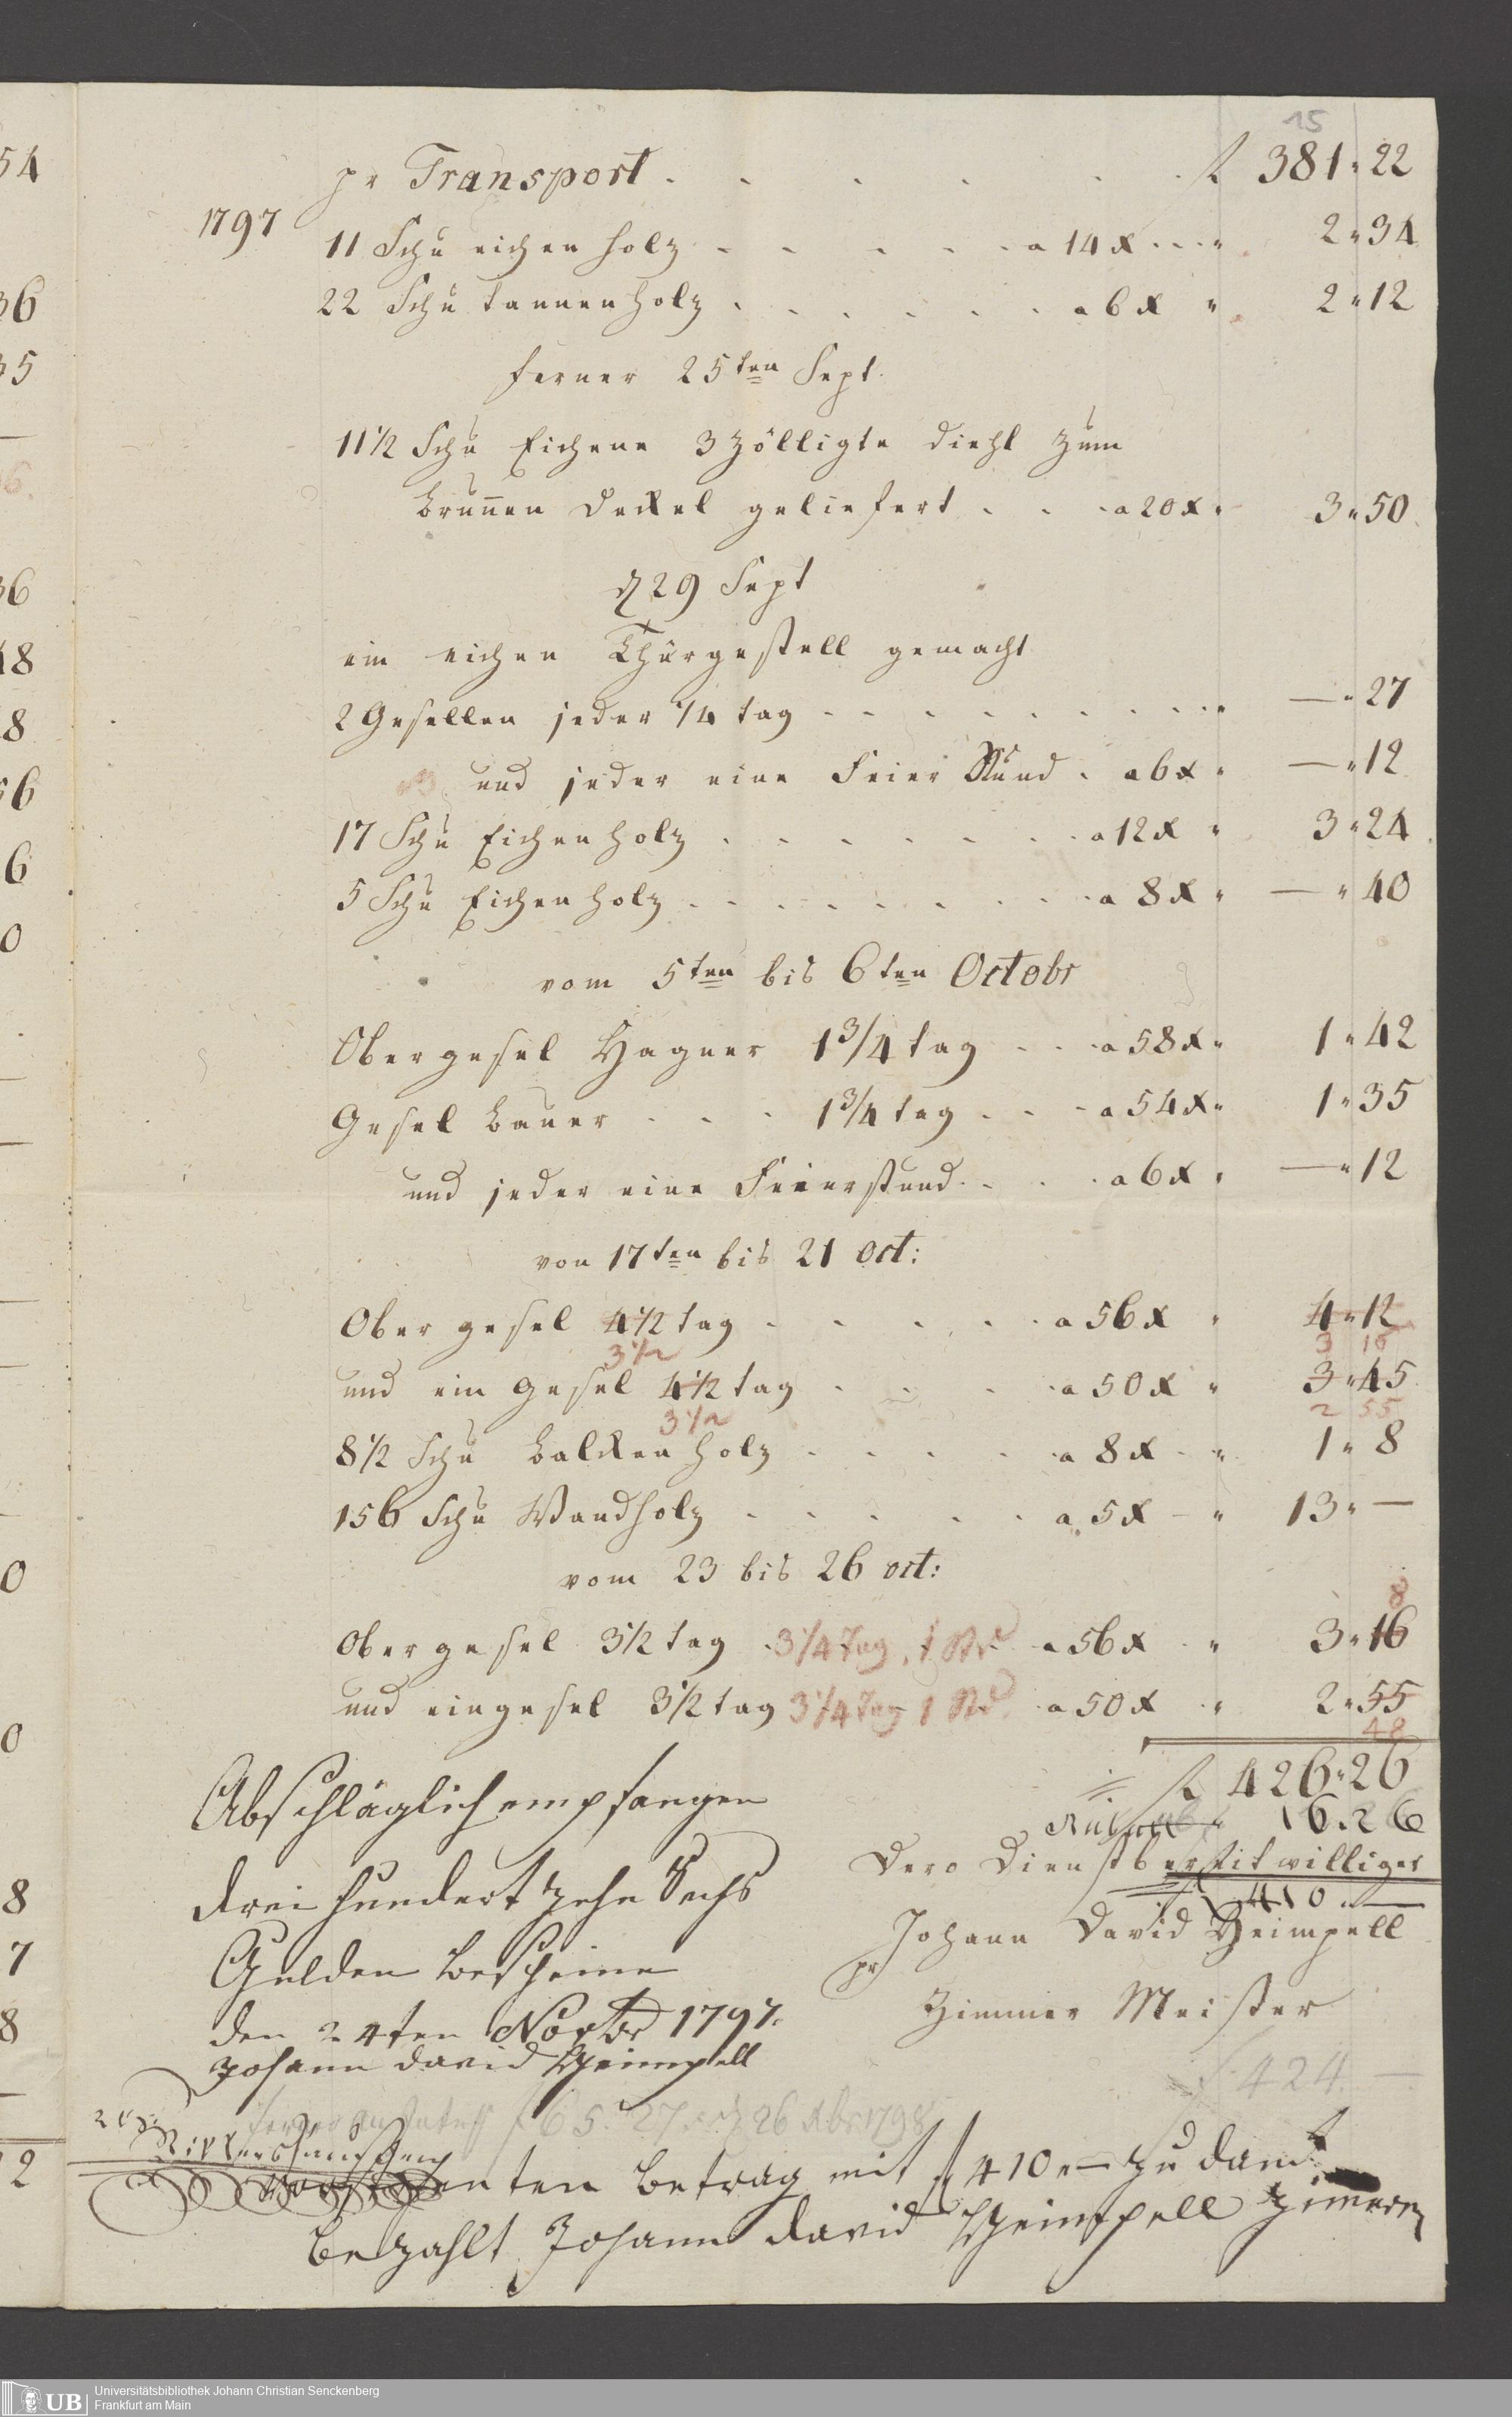 15
pr Transport . . . . . . f 381 " 22
1797
11 Schu eichen Holz . . . . . a 14 x . . . " 2 " 34
22 Schu tannen Holz . . . . . . a 6 x " 2 " 12
ferner 25ten Sept.
11 1/2 Schu Eichene 3 zölligte diehl zum
Brunnen deckel geliefert . . . a 20 x " 3 " 50
d 29 Sept
ein eichen Thürgestell gemacht
2 Gesellen jeder 1/4 tag . . . . . . . . . " — " 27
und jeder eine Feier Stund . a 6 x " — " 12
17 Schu Eichen Holz . . . . . . . a 12 x " 3 " 24
5 Schu Eichen Holz . . . . . . . . . a 8 x " — " 40
vom 5ten bis 6ten Octobr
Obergesel Hagner 1 3/4 tag . . . a 58 x " 1 " 42
Gesel Bauer . . . 1 3/4 tag . . . a 54 x " 1 " 35
und jeder eine Feierstund . . . . a 6 x " — " 12
von 17ten bis 21 Oct:
Ober gesel 4 1/2 tag . . . . . a 56 x " 4 " 12
3 1/2 3 16
und ein gesel 4 1/2 tag . . . . a 50 x " 3 " 45
3 1/2 2 55
8 1/2 Schu Balcken Holz . . . . . a 8 x . " 1 " 8
156 Schu Wandholz . . . . . a 5 x - " 13 " —
vom 23 bis 26 oct:
8
Obergesel 3 1/2 tag . 3 1/4 Tag, 1 St. a 56 x . " 3 " 16
und ein gesel 3 1/2 tag 3 1/4 Tag 1 Std. a 50 x . " 2 " 55
48
f 426 " 26
16 . 26
410 " —
Dero Dienstbereitwilliger
Johann David Heimpell
pr
Zimmer Meister
Abschläglich empfangen
drei hundert zehn Sechs
Gulden bescheine
den 24ten Novbr 1797.
Johann David Heimpell
f 424. —
f 65. 27. 26 Xbr 1798
betrag mit f 410 " — zu danck
bezahlt Johann David Heimpell
Universitätsbibliothek Johann Christian Senckenberg
Frankfurt am Main
UB